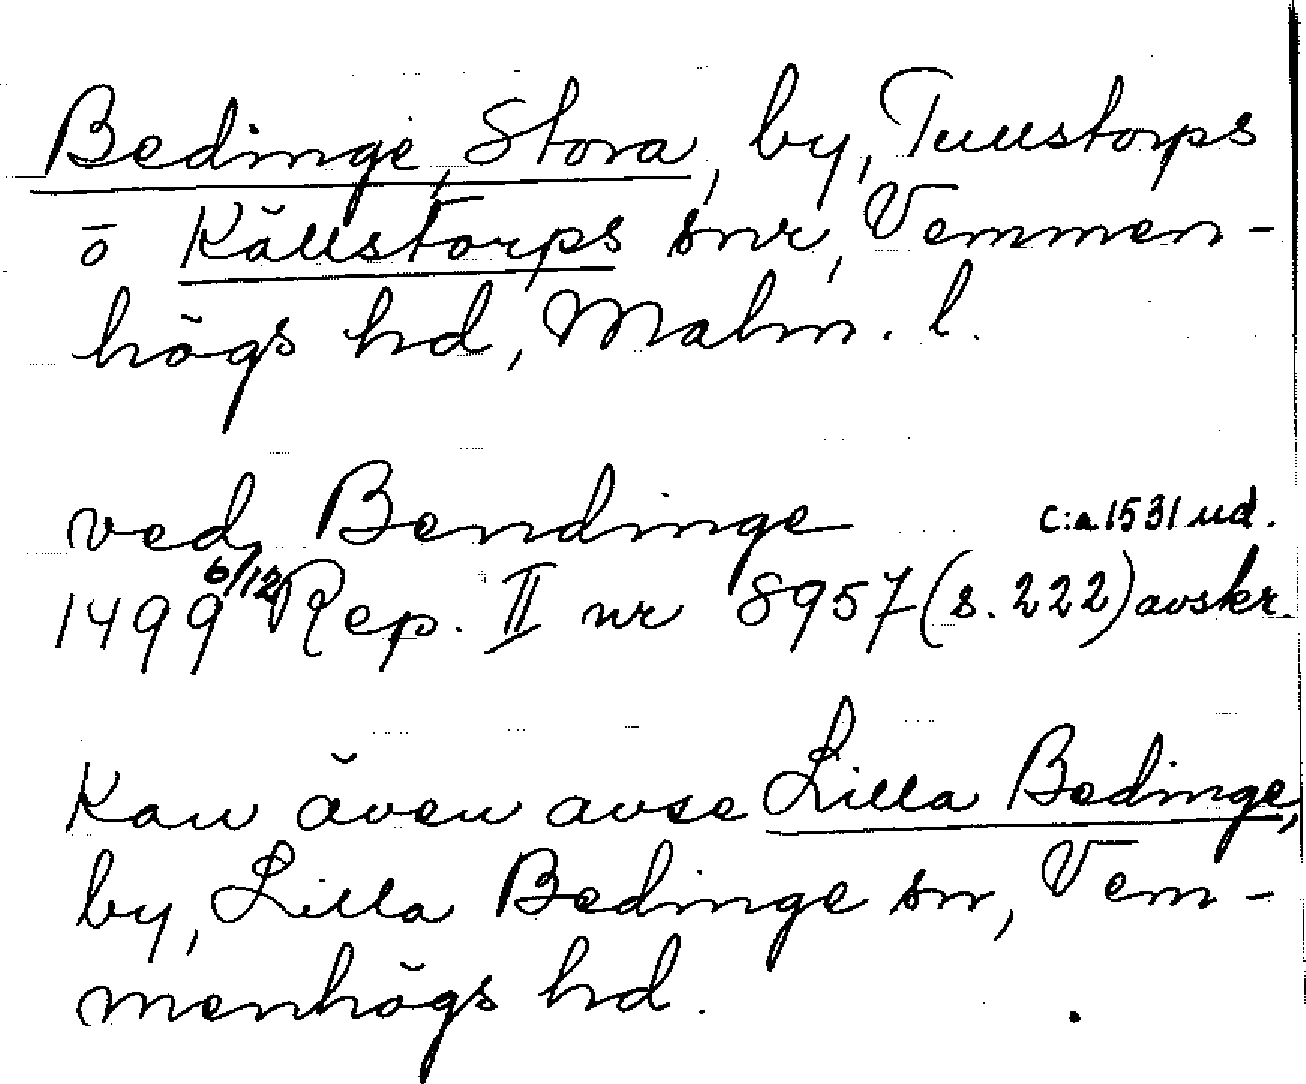 Bedinge, Stora, by, Tullstorps
o Källstorps snr, Vemmen-
högs hd, Malm. l.
ved Bendinge c:a 1531 ud.
1499 6/12 Rep. II nr 8957 (s. 222) avskr.
Kan även avse Lilla Bedinge,
by, Lilla Bedinge sn, Vem-
menhögs hd.